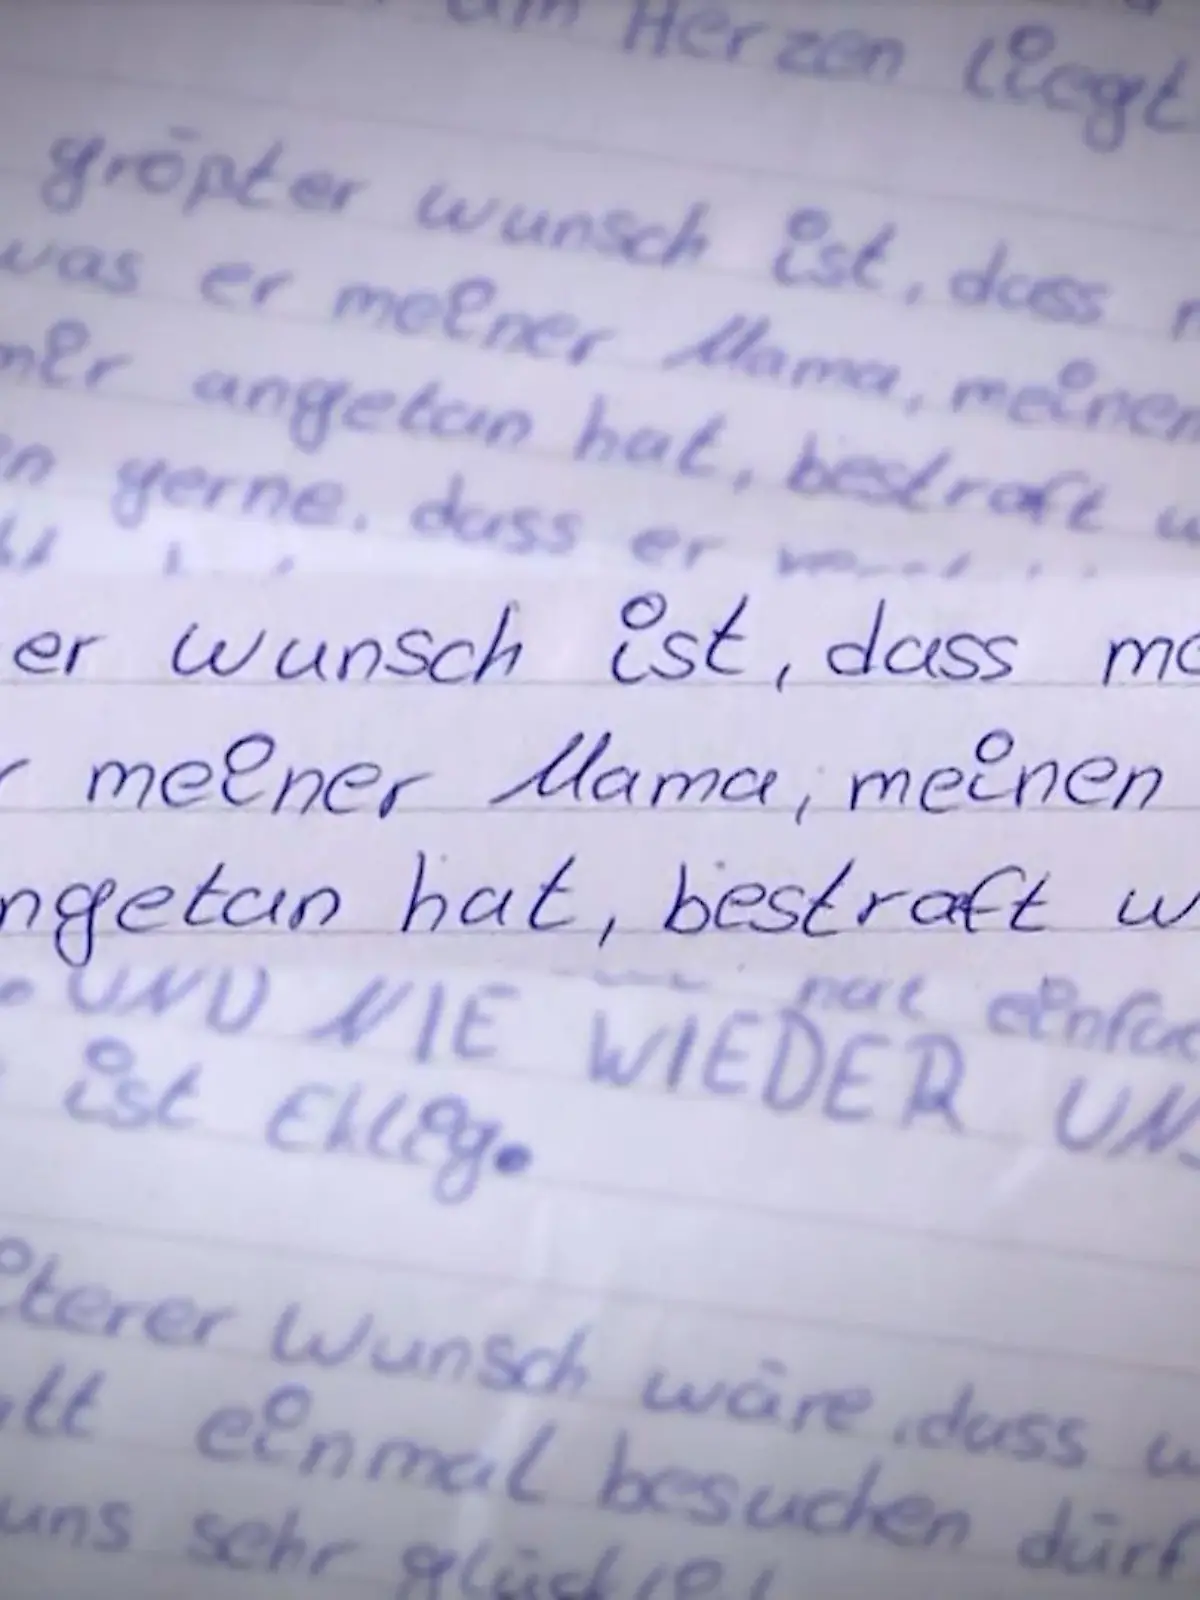 am Herzen liegt
größter wunsch ist, dass
was er meiner Mama, meinen
mir angetan hat, bestraft
gerne, dass er
er wunsch ist, dass me
meiner Mama, meinen
ngetan hat, bestraft w
nur einfac
UND NIE WIEDER UNS
ist Eklig.
iterer Wunsch wäre, dass w
att einmal besuchen dürf
uns sehr glücklich